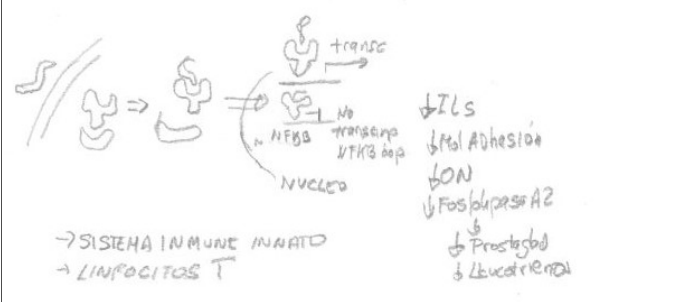 transc
No
transcrip
NFKB dep
NFKB
NUCLEO
↓ILs
↓Mol Adhesión
↓ON
↓Fosfolipasa A2
↓
↓Prostagld
↓Leucotrienos
→SISTEMA INMUNE INNATO
→LINFOCITOS T